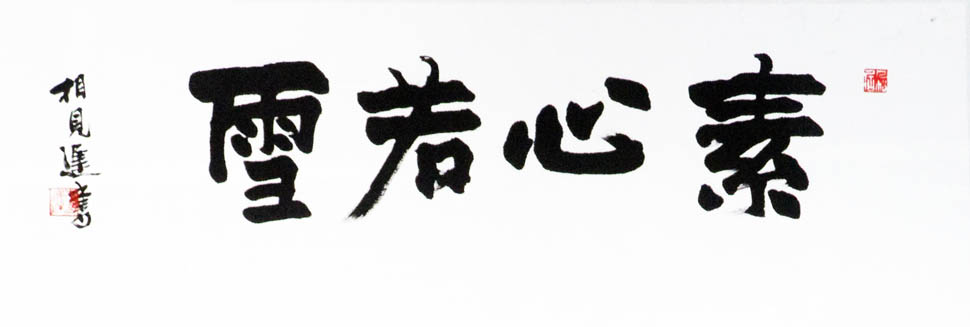 素心若雪
相見遲書